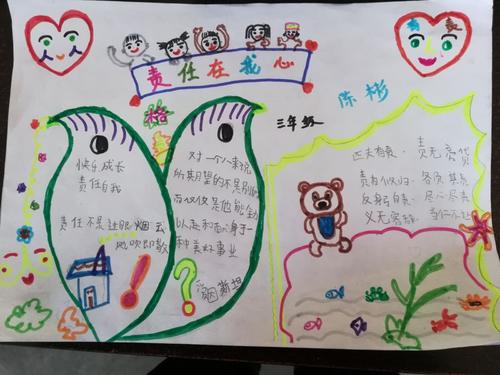 人人
有责
责任在我心
三年级
陈彬
快乐成长
责任自我
责任不是过眼烟云
风吹即散
对一个人来说
所期望的不是别的
而仅仅是他能全
以赴和献身于一
种美好事业
爱因斯坦
匹夫有责·责无旁贷
责有攸归·各负其责
反躬自责·尽心尽责
义无旁辞